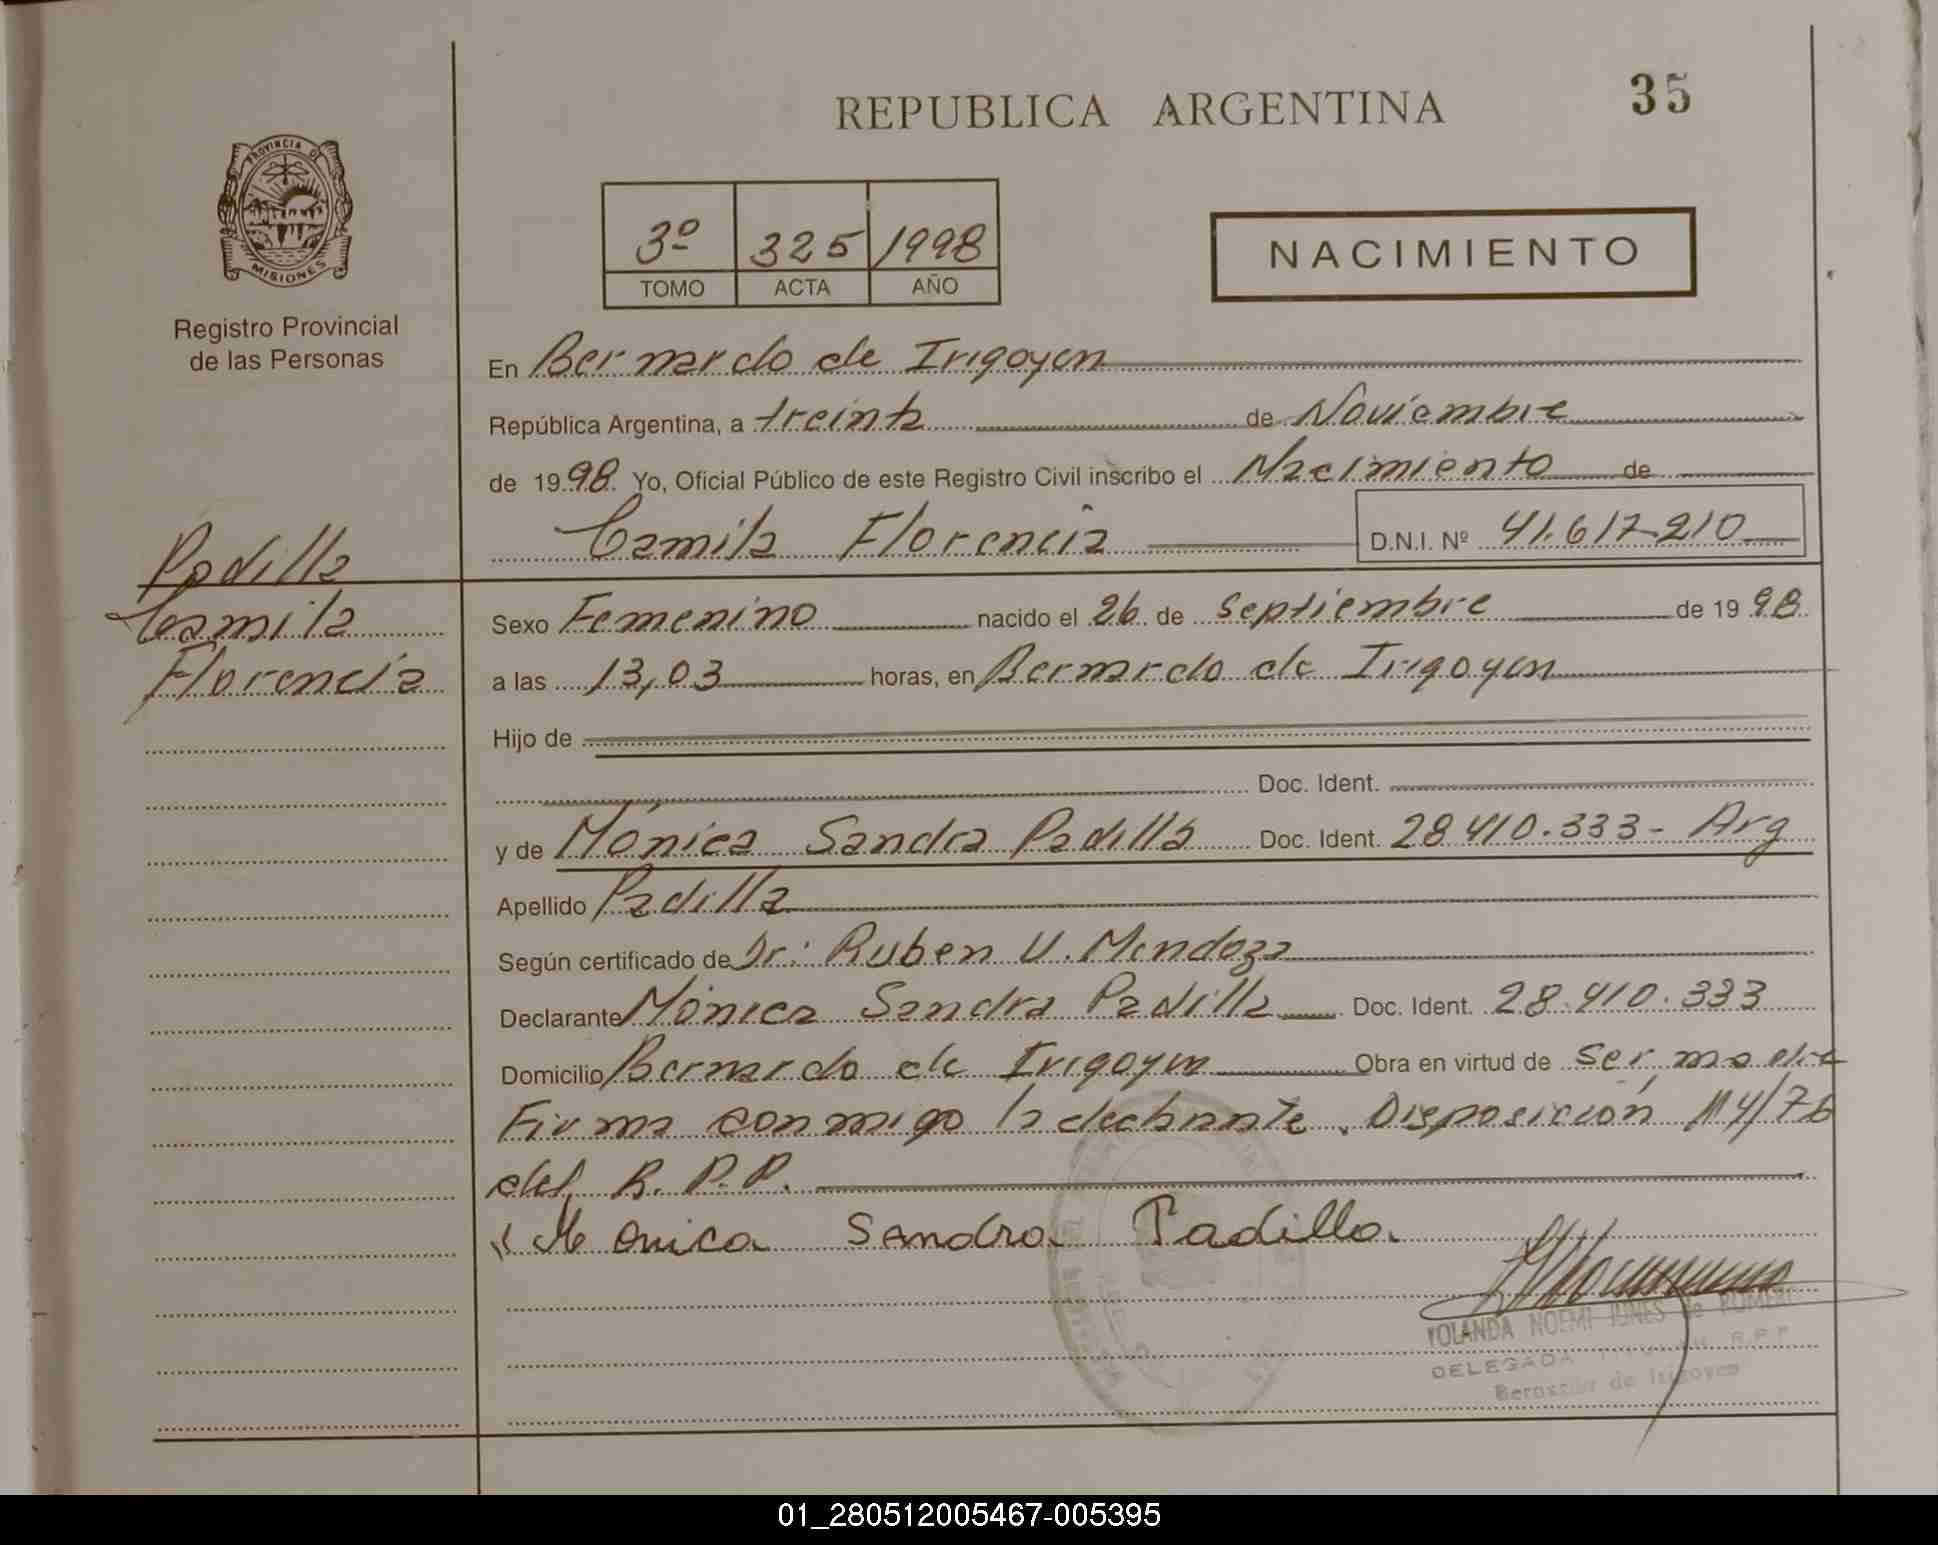 REPUBLICA ARGENTINA
35
PROVINCIA DE
MISIONES
Registro Provincial
de las Personas
3º 325 1998
TOMO ACTA AÑO
NACIMIENTO
En Bernardo de Irigoyen
República Argentina, a treinta de Noviembre
de 1998 Yo, Oficial Público de este Registro Civil inscribo el Nacimiento de
Camila Florencia D.N.I. Nº 41.617.210
Padilla
Camila
Florencia
Sexo Femenino nacido el 26 de Septiembre de 1998
a las 13,03 horas, en Bernardo de Irigoyen
Hijo de
Doc. Ident.
y de Mónica Sandra Padilla Doc. Ident. 28.410.333- Arg
Apellido Padilla
Según certificado de Dr: Ruben U. Mendoza
Declarante Mónica Sandra Padilla Doc. Ident. 28.410.333
Domicilio Bernardo de Irigoyen Obra en virtud de ser madre
Firma conmigo la declarante. Disposición 114/76
del R.P.P.
Monica Sandra Padilla
YOLANDA NOEMI JUNES de ROMERO
DELEGADA TITULAR R.P.P.
Bernardo de Irigoyen
01_280512005467-005395